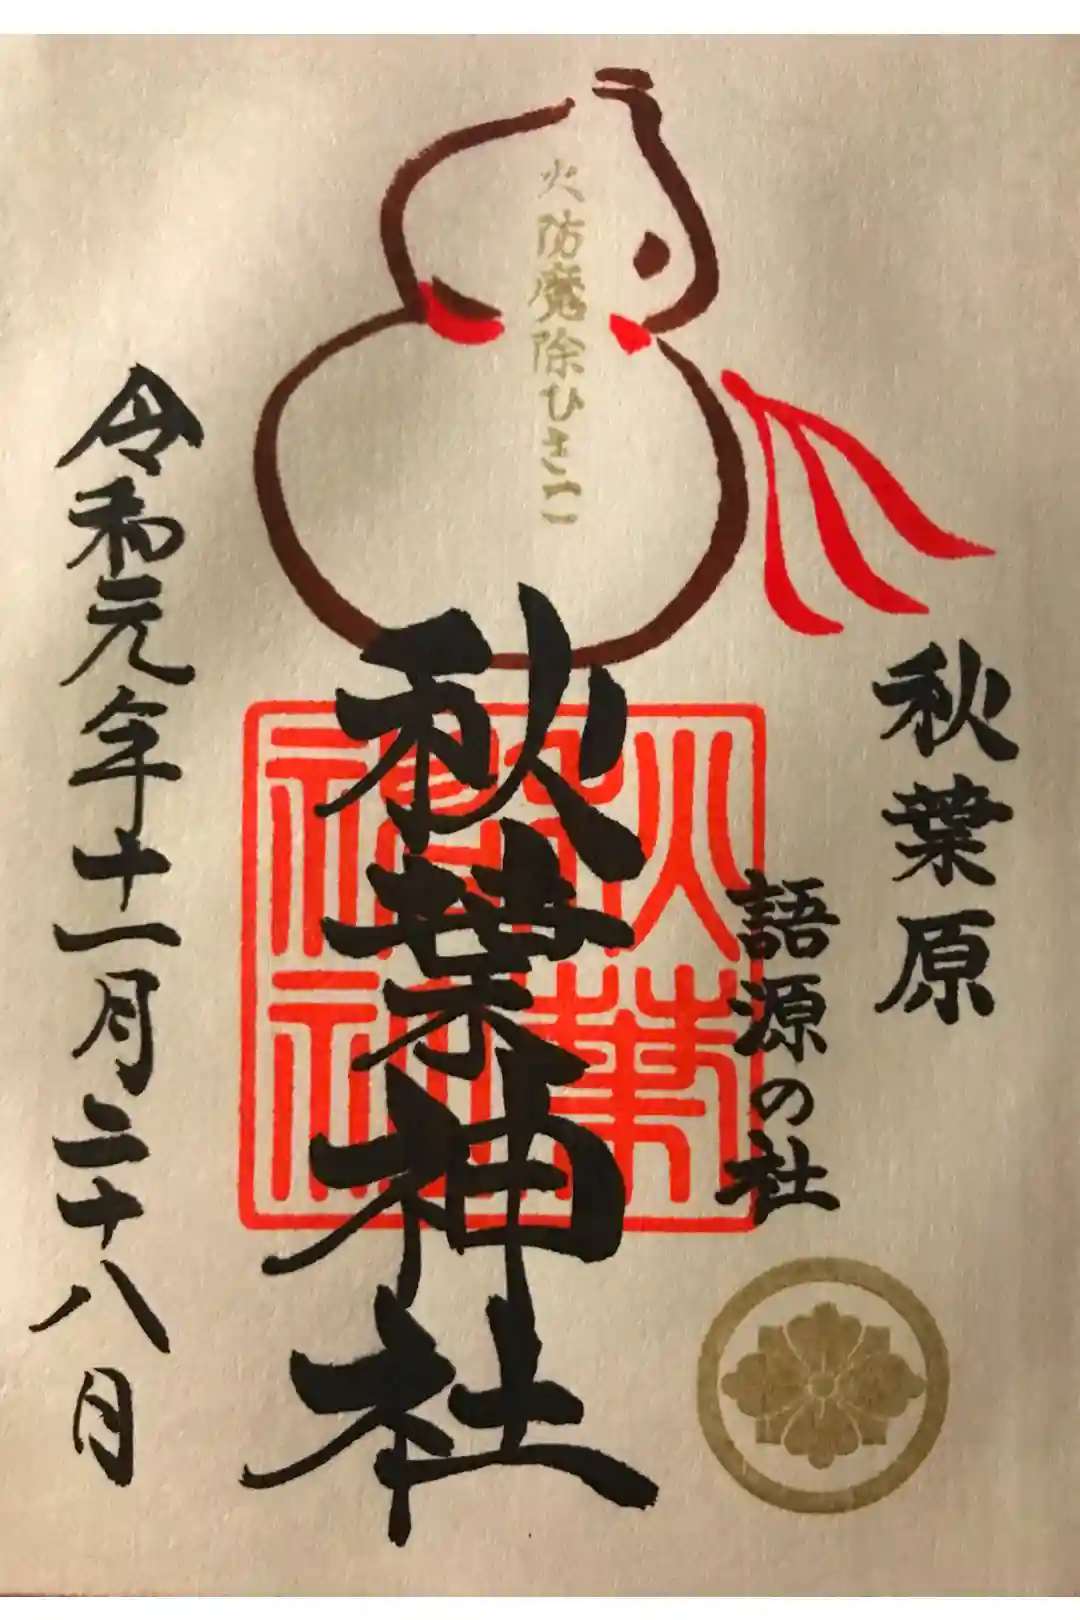 火防魔除ひさご
秋葉原
語源の社
秋葉神社
秋葉神社
令和元年十一月二十八日